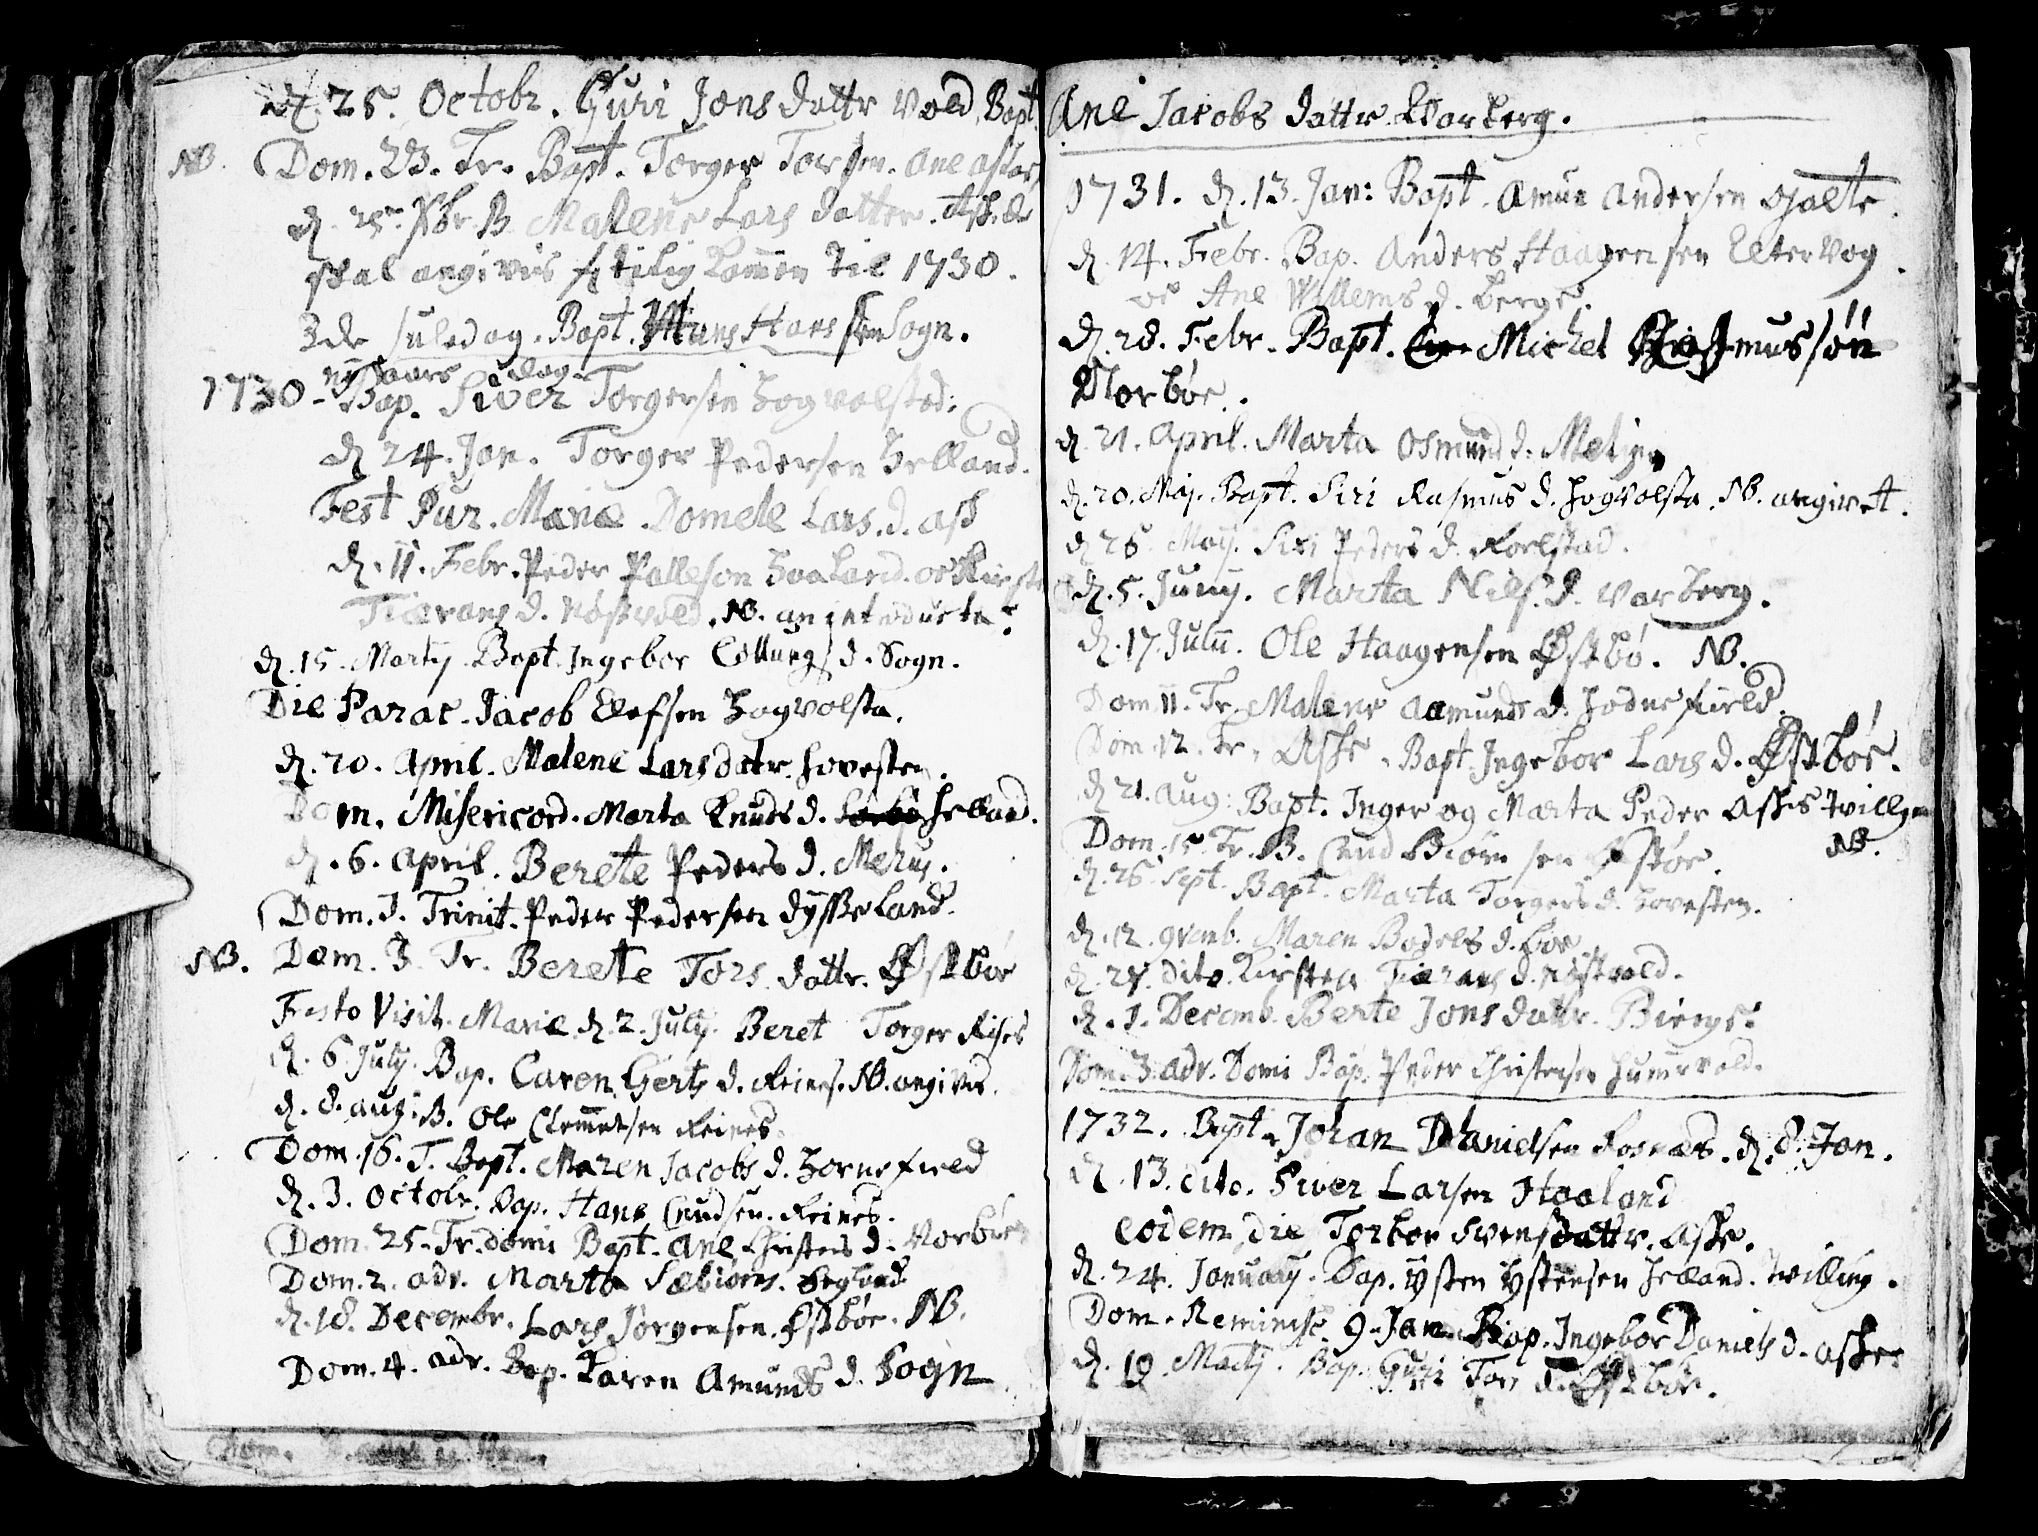 d. 25. Octobr. Guri Jons dattr Vold. Bapt
NB. Dom. 23. Tr. Bapt. Torger Torsen. Ane
d. 25 Xbr. B. Malene Lars datter.
skal angivis til 1730.
3de juledag. Bapt. Hans Hansen Sogn.
nÿ aars dag.
1730. Bap. Siver Torgersen Hogvolsted.
d. 24. Jan. Torger Pedersen Helland.
Fest Pur. Mariæ. Domele Lars. d. Ask
d. 11. Febr. Peder Palleson Haaland. oc
d. NB. an introducta?
d. 15. Martij. Bapt. Ingebor d. Sogn.
Die Parac. Jacob Elefsen Hogvolsta.
d. 20. April. Malene Lars datr. Hovesten.
Dom. Misericord. Marta Knuds d. Helland.
d. 6. April. Berete Peders d. Meling.
Dom. 1. Trinit. Peder Pedersen Dysseland.
NB. Dom. 3. Tr. Berete Tors dattr. Østbøe
Festo Visit. Mariæ d. 2. July. Beret Torger
d. 6. July. Bap. Caren Gerts d. Reines. NB. angived.
d. 8. aug: B. Ole Clemmetsen Reines.
Dom. 16. T. Bapt. Maren Jacobs d. Hornefield
d. 3. Octobr. Bap. Hans Cnudsen. Reines.
Dom. 25. Tr. domi Bapt. Ane Christens d. Norbøe
Dom. 2. adv. Marta
d. 18. Decembr. Lars Jørgensen. Østbøe. NB.
Dom. 4. adv. Bap. Karen Amunds d. Sogn
Ane Jacobs dattr Varberg.
1731. d. 13. Jan: Bapt. Amun Andersen Goalte.
d. 14. Febr. Bap. Anders Haagensen Eltervog
oc Ane Willems d. Berge.
d. 28. Febr. Bapt. Michel Rasmussøn
Norbøe.
d. 21. April. Marta Osmund d. Meling
d. 20. Maj. Bapt. Siri Rasmus d. Hogvolsta. NB. angivet.
d. 25. Maÿ. Siri Peders d.
d. 5. Junij. Marta Niels. d. Varberg.
d. 17. Julii. Ole Haagensen Østbø. NB.
Dom. 11. Tr. Malene Aamunds d. Hodnefield.
Dom. 12. Tr. Aske. Bapt. Ingebor Lars d. Østbøe.
d. 21. Aug: Bapt. Inger og Marta Peder Askes tvilling
Dom. 15 Tr. B. Cnud Biørnsen Østbøe. NB.
d. 26. Sept. Bapt. Marta Torgers d. Hovesten.
d. 12. 9vemb. Maren Bodels d. Bøe
d. 27. dito. Kirsten d.
d. 1. Decemb. Berte Jons dattr.
Dom. 3. adv. Domi Bap. Peder Christensen
1732. Bapt. Johan Danielsen d. 8. Jan.
d. 13. dito. Siver Larsen Haaland
eodem die Torbor Svens dattr. Aske.
d. 24. Januarij. Bap. Ÿsten Ÿstensen Helland. tvilling.
Dom. Reminisc. 9. Jan. Bap. Ingebor Daniels d. Aske
d. 19. Martij. Bap. Guri Tors d. Østbøe.